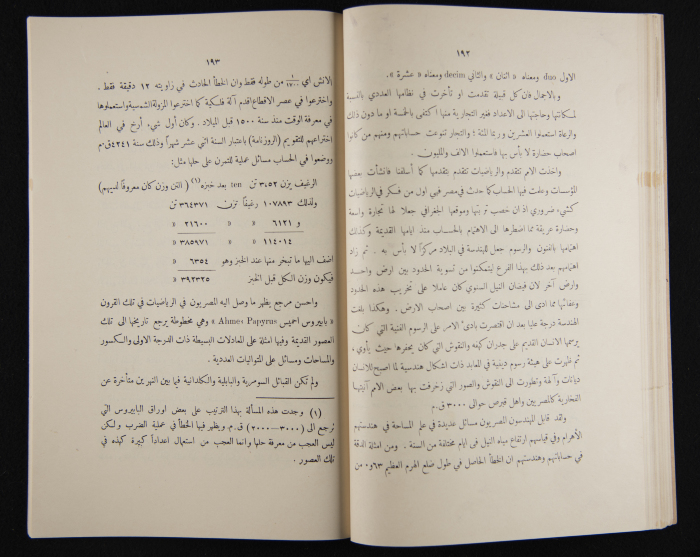 ١٩٢
الاول duo ومعناه « اثنان » والثاني decim ومعناه « عشرة » .
وبالاجمال فان كل قبيلة تقدمت او تأخرت في نظامها العددي بالنسبة
لمكانتها وحاجتها الى الاعداد فغير التجارية منها اكتفى بالخمسة او ما دون ذلك
والرعاة استعملوا العشرين وربما المئة ؛ والتجار تنوعت حساباتهم ومنهم من كانوا
اصحاب حضارة لا بأس بها فاستعملوا الالف والمليون .
واخذت الامم تتقدم والرياضيات تتقدم بتقدمها كما أسلفنا فأنشأت بعضها
المؤسسات وعلمت فيها الحساب كما حدث في مصر فهي اول من فكر في الرياضيات
كشيء ضروري اذ ان خصب تربتها وموقعها الجغرافي جعلا لها تجارة واسعة
وحضارة عريقة مما اضطرها الى الاهتمام بالحساب منذ ايامها القديمة وكذلك
اهتمامها بالفنون والرسوم جعل للهندسة في البلاد مركزاً لا بأس به . ثم زاد
اهتمامهم بعد ذلك بهذا الفرع ليتمكنوا من تسوية الحدود بين ارض واحد
وارض آخر لان فيضان النيل السنوي كان عاملا على تخريب هذه الحدود
وعفائها مما ادى الى مشاحنات كثيرة بين اصحاب الارض . وهكذا بلغت
الهندسة درجة عليا بعد ان اقتصرت بادئ الامر على الرسوم الفنية التي كان
يرسمها الانسان القديم على جدران كهفه والنقوش التي كان يحفرها حيث يأوي ،
ثم ظهرت على هيئة رسوم دينية في المعابد ذات اشكال هندسية لما اصبح للانسان
ديانات وآلهة وتطورت الى النقوش والصور التي زخرفت بها بعض الامم آنيتها
الفخارية كالمصريين واهل قبرص حوالى ٣٠٠٠ ق.م
ولقد قابل المهندسون المصريون مسائل عديدة في علم المساحة في هندستهم
الأهرام وفي قياسهم ارتفاع مياه النيل في ايام مختلفة من السنة . ومن امثلة الدقة
في حساباتهم وهندستهم ان الخطأ الحاصل في طول ضلع الهرم العظيم ٦٣و٠ من
١٩٣
الانش اي من طوله فقط وان الخطأ الحادث في زاويته ١٢ دقيقة فقط .
واخترعوا في عصر الاقطاع اقدم آلة فلكية كما اخترعوا المزولة الشمسية واستعملوها
في معرفة الوقت منذ سنة ١٥٠٠ قبل الميلاد . وكان أول شيء أرخ في العالم
اختراعهم للتقويم ( الروزنامة ) باعتبار السنة اثني عشر شهراً وذلك سنة ٤٢٤١ ق.م
ووضعوا في الحساب مسائل عملية للتمرن على حلها مثل :
الرغيف يزن ٣٠٥٢ تن ten بعد خبزه (١) ( التن وزن كان معروفاً لديهم )
ولذلك ١٠٧٨٩٣ رغيفاً تزن ٣٦٤٣٧١ تن
و ٦١٢١ « « ٢١٦٠٠ «
١١٤٠١٤ « « ٣٨٥٩٧١ «
اضف اليها ما تبخر منها عند الخبز وهو ٦٣٥٤ «
فيكون وزن الكل قبل الخبز ٣٩٢٣٢٥ «
واحسن مرجع يظهر ما وصل اليه المصريون في الرياضيات في تلك القرون
« بابيروس احميس Ahmes Papyrus » وهي مخطوطة يرجع تاريخها الى تلك
العصور القديمة وفيها امثلة على المعادلات البسيطة ذات الدرجة الاولى والكسور
والمساحات ومسائل على المتواليات العددية .
ولم تكن القبائل السومرية والبابلية والكلدانية فيما بين النهرين متأخرة عن
(١) وجدت هذه المسألة بهذا الترتيب على بعض اوراق البابيروس التي
ترجع الى (٣٠٠٠—٢٠٠٠) ق.م ويظهر فيها الخطأ في عملية الضرب ولكن
ليس العجب من معرفة حلها وانما العجب من استعمال اعداداً كبيرة كهذه في
تلك العصور .